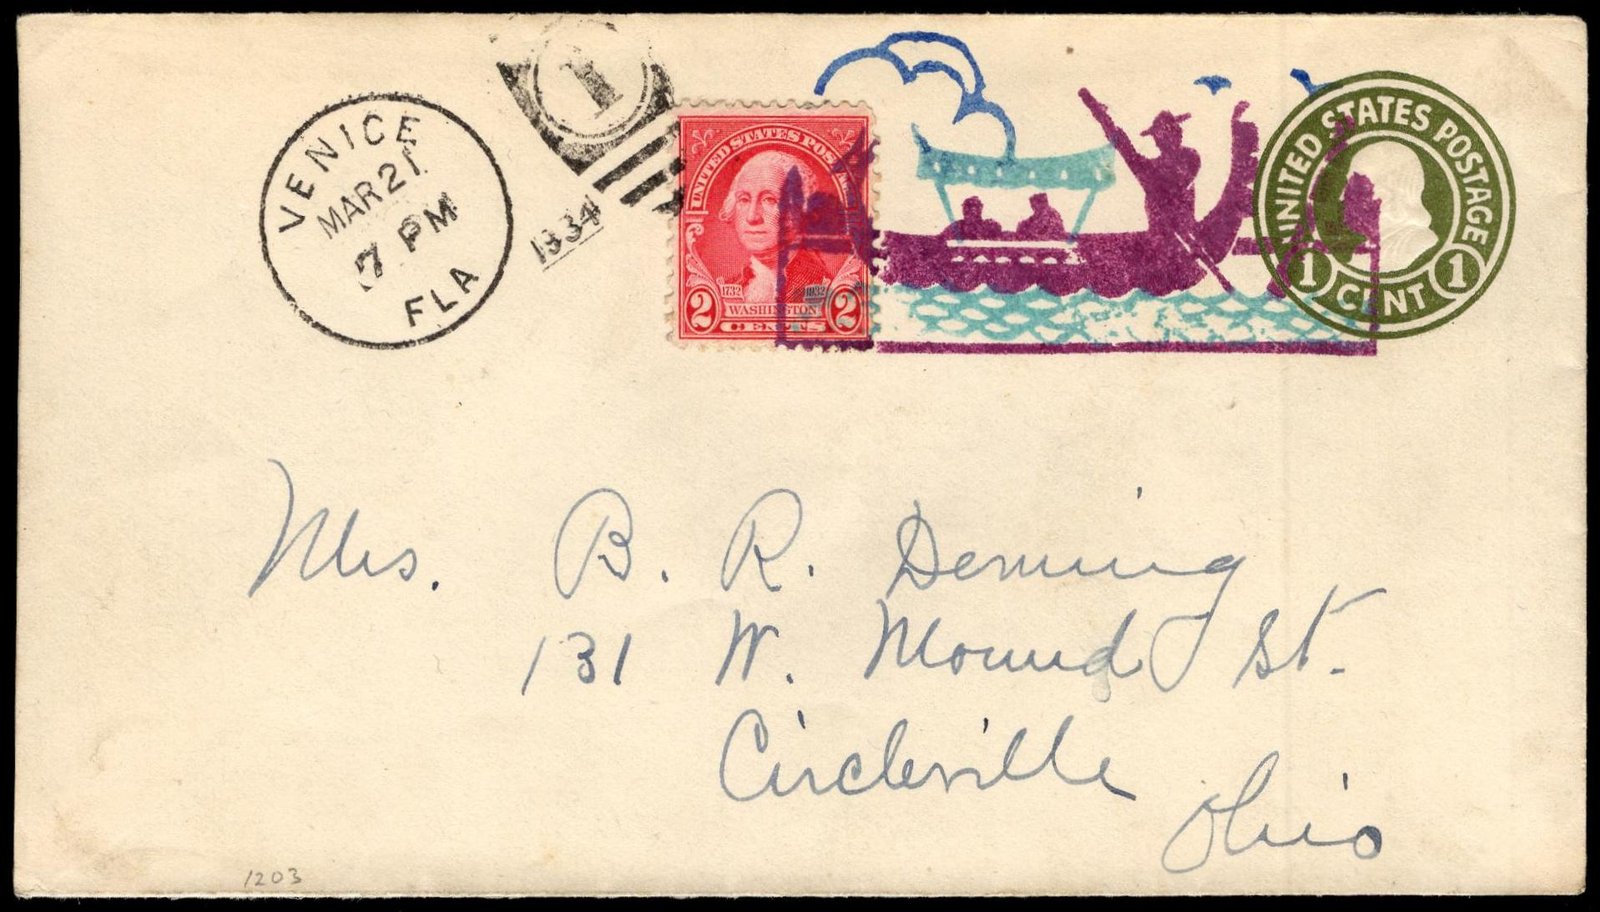 VENICE
MAR 21
7 PM
FLA
1
1934
UNITED STATES POSTAGE
1732 1932
WASHINGTON
2 CENTS 2
UNITED STATES POSTAGE
1 CENT 1
Mrs. B. R. Deming
131 W. Mound St.
Circleville
Ohio
1203